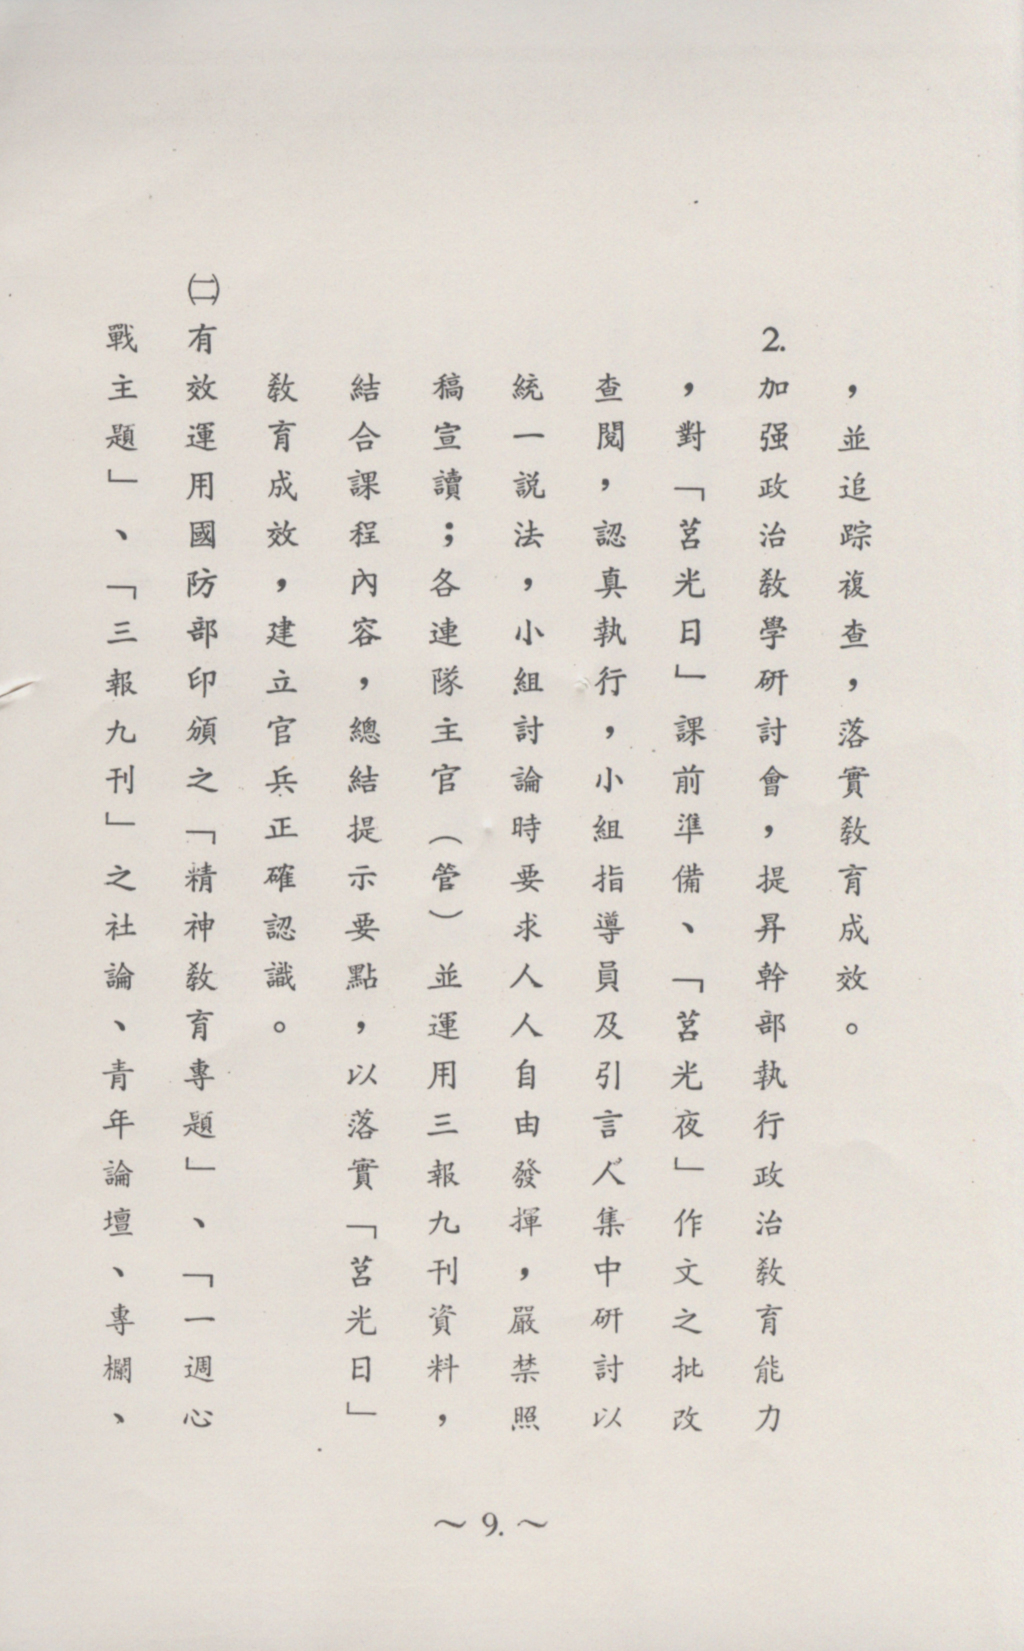 ，並追踪複查，落實教育成效。
2.加强政治教學研討會，提昇幹部執行政治教育能力
，對「莒光日」課前準備、「莒光夜」作文之批改
查閱，認真執行，小組指導員及引言人集中研討以
統一説法，小組討論時要求人人自由發揮，嚴禁照
稿宣讀；各連隊主官（管）並運用三報九刊資料，
結合課程內容，總結提示要點，以落實「莒光日」
教育成效，建立官兵正確認識。
㈡有效運用國防部印頒之「精神教育專題」、「一週心
戰主題」、「三報九刊」之社論、青年論壇、專欄、
～9.～